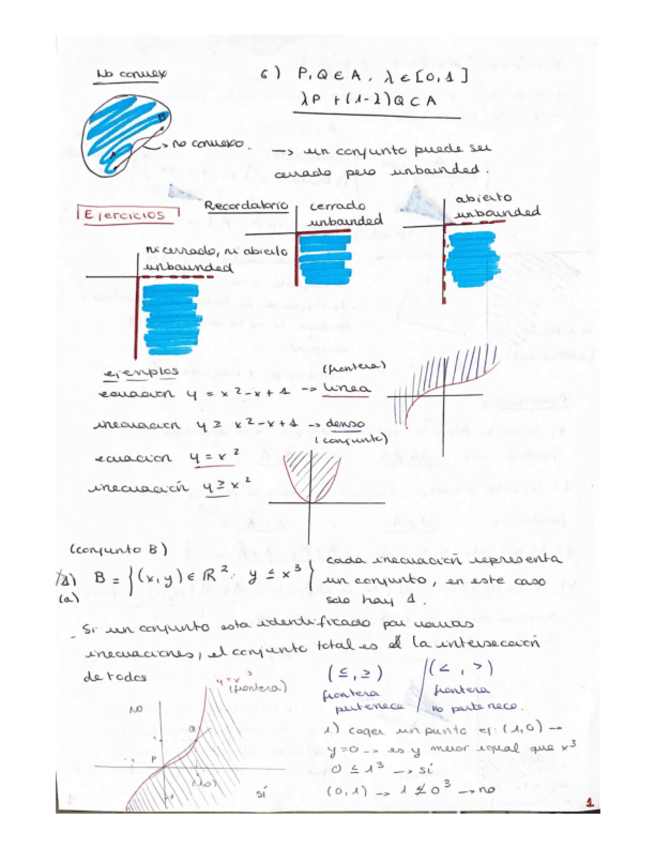 No convex
c) P, Q ∈ A, λ ∈ [0, 1]
λP + (1-λ)Q ⊂ A
no convexo.
→ un conjunto puede ser
cerrado pero unbounded.
Ejercicios
Recordatorio
cerrado
unbounded
abierto
unbounded
ni cerrado, ni abierto
unbounded
ejemplos
(frontera)
ecuación y = x² - x + 1 → linea
inecuación y ≥ x² - x + 1 → denso
(conjunto)
ecuación y = x²
inecuación y ≥ x²
(conjunto B)
1) B = {(x, y) ∈ R²: y ≤ x³}
(a)
cada inecuación representa
un conjunto, en este caso
solo hay 1.
- Si un conjunto esta identificado por varias
inecuaciones, el conjunto total es la intersección
de todos
y = x³
(frontera)
(≤, ≥)
frontera
pertenece
(<, >)
frontera
no pertenece.
NO
P
Q
(1,0)
SÍ
1) coger un punto ej: (1,0) →
y=0 → es y menor igual que x³
0 ≤ 1³ → sí
(0,1) → 1 ≰ 0³ → no
1